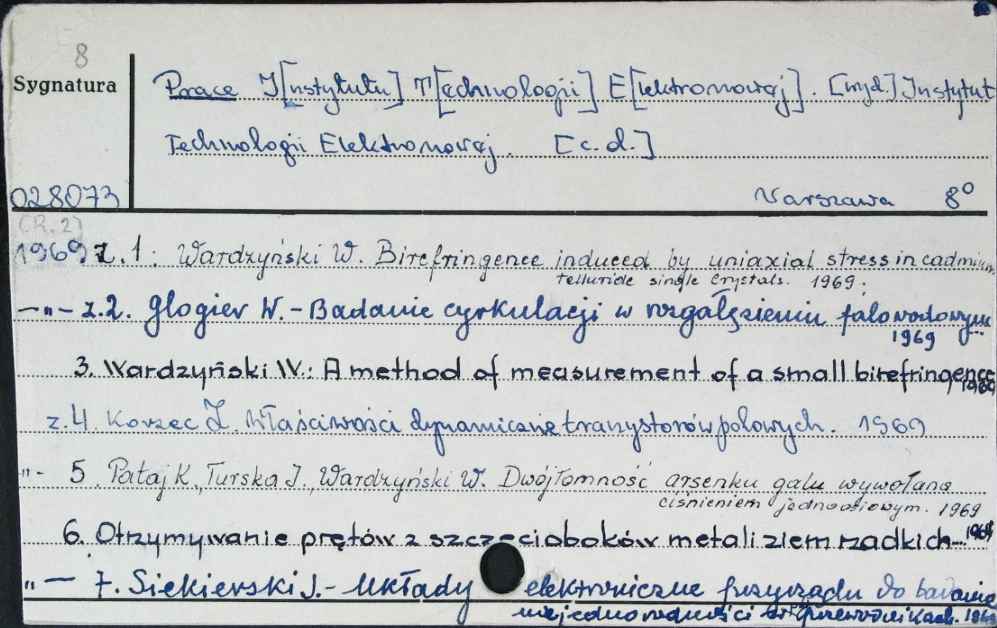 8
Sygnatura
Prace I[nstytutu] T[echnologii] E[lektronowej]. [wyd] Instytut
Technologii Elektronowej. [c.d.]
028073
Warszawa 8°
(R.2)
1969 z.1: Wardzyński W. Birefringence induced by uniaxial stress in cadmium
telluride single crystals. 1969.
—„— z.2. Glogier W. - Badanie cyrkulacji w rozgałęzieniu falowodowym
1969
3. Wardzyński W.: A method of measurement of a small birefringence
1969
z.4 Korzec Z. Właściwości dynamiczne tranystorów polowych. 1969
„- 5. Pataj K., Turska I., Wardzyński W. Dwójłomność arsenku galu wywołana
ciśnieniem jednoosiowym. 1969
6. Otrzymywanie prętów z sześcioboków metali ziem rzadkich... 1969
„— 7. Siekierski J. - Układy elektroniczne przyrządu do badania
niejednorodności w półprzewodnikach. 1969